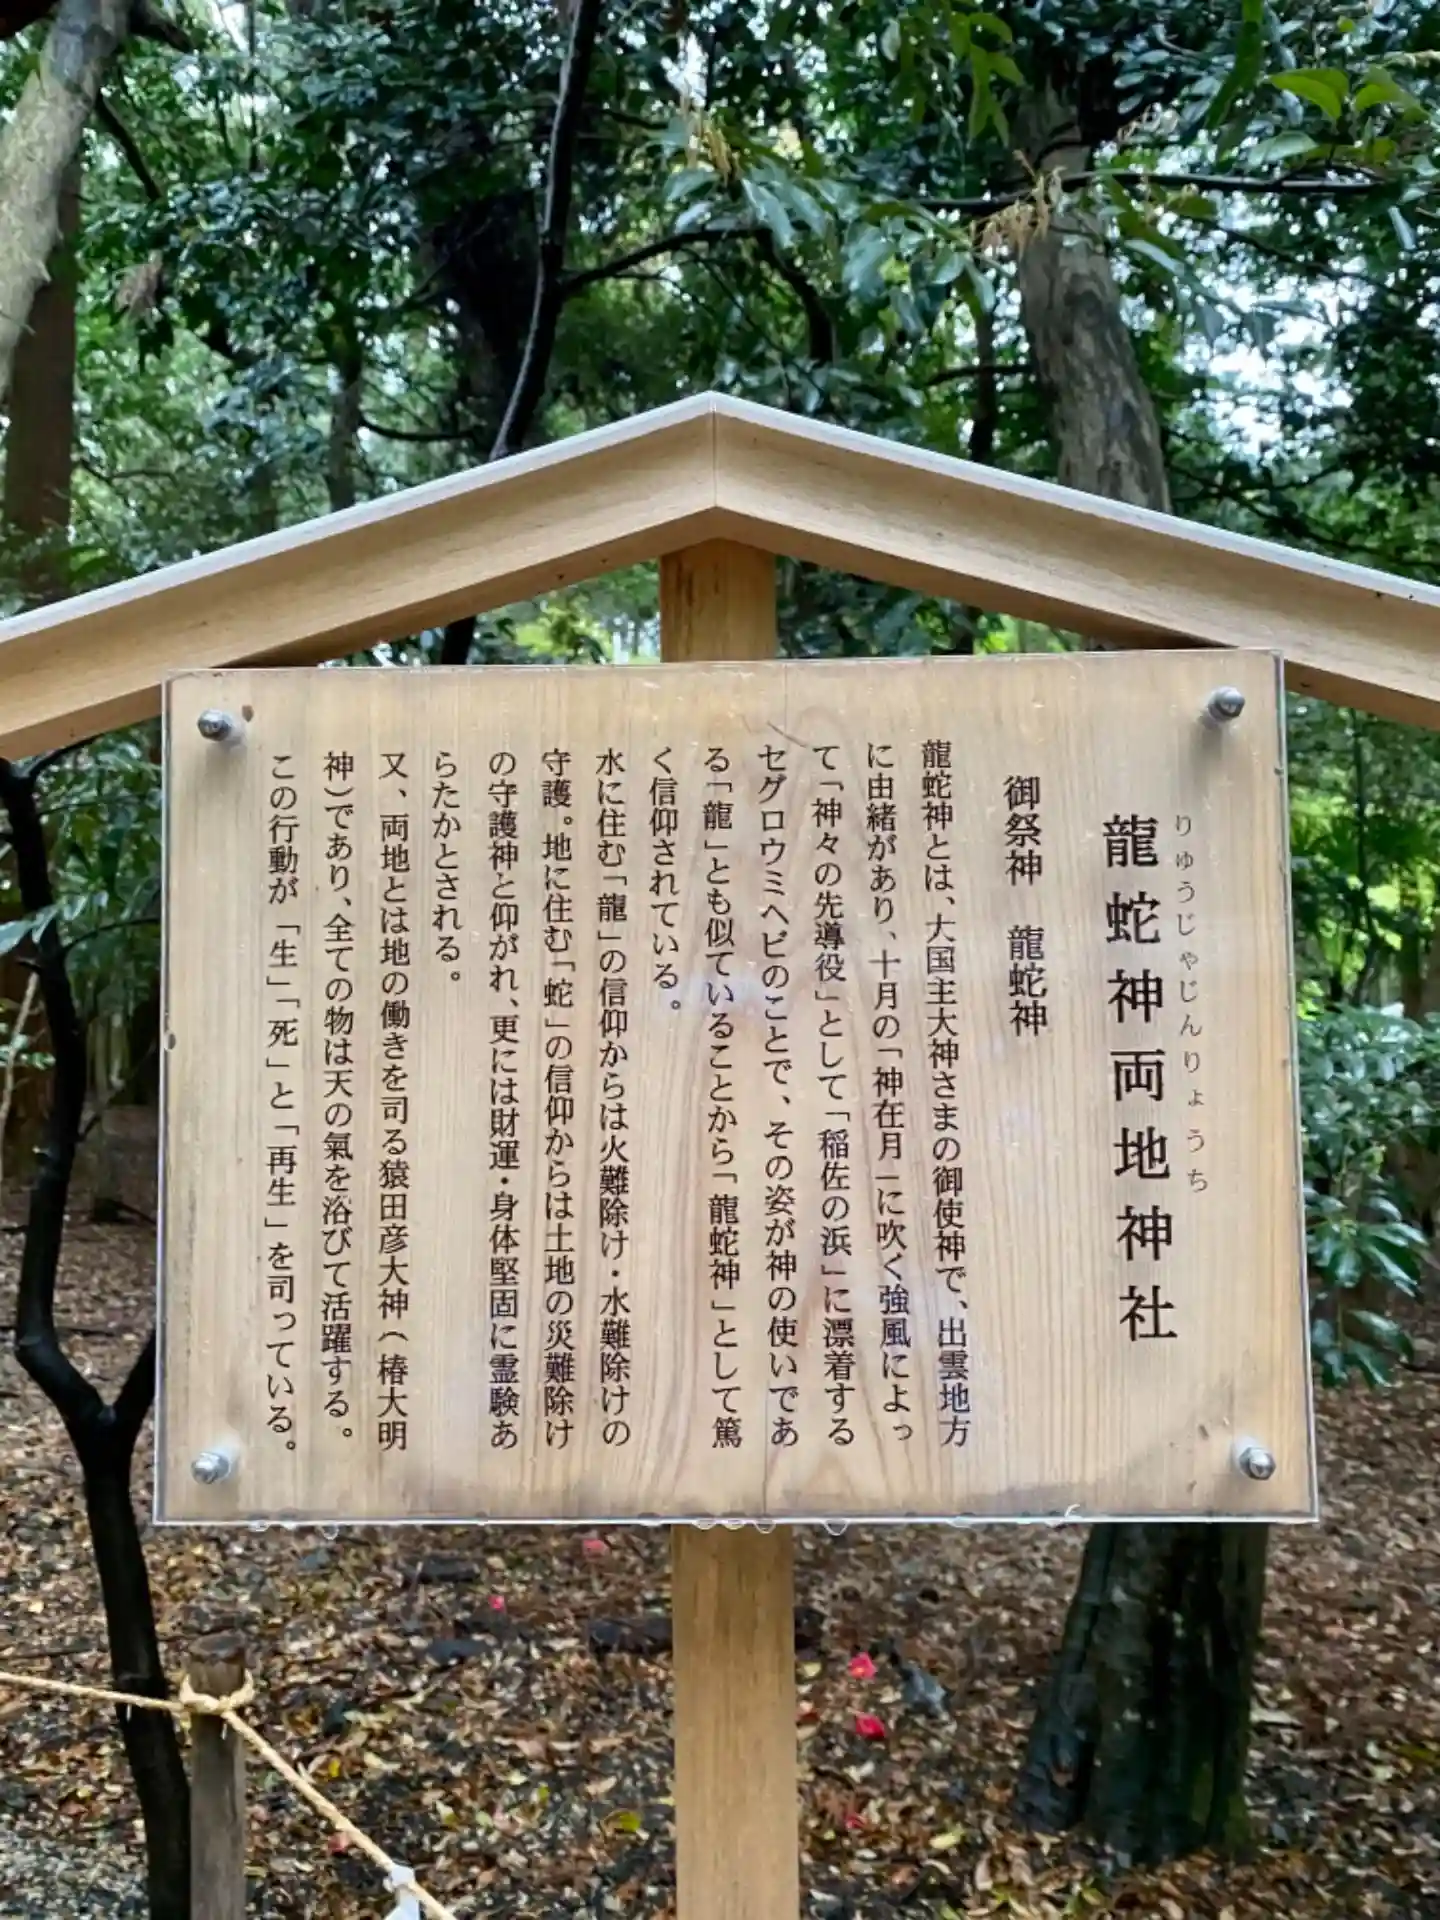 りゅうじゃじんりょうち
龍蛇神両地神社
御祭神 龍蛇神
龍蛇神とは、大国主大神さまの御使神で、出雲地方
に由緒があり、十月の「神在月」に吹く強風によっ
て「神々の先導役」として「稲佐の浜」に漂着する
セグロウミヘビのことで、その姿が神の使いであ
る「龍」とも似ていることから「龍蛇神」として篤
く信仰されている。
水に住む「龍」の信仰からは火難除け・水難除けの
守護。地に住む「蛇」の信仰からは土地の災難除け
の守護神と仰がれ、更には財運・身体堅固に霊験あ
らたかとされる。
又、両地とは地の働きを司る猿田彦大神（椿大明
神）であり、全ての物は天の氣を浴びて活躍する。
この行動が「生」「死」と「再生」を司っている。